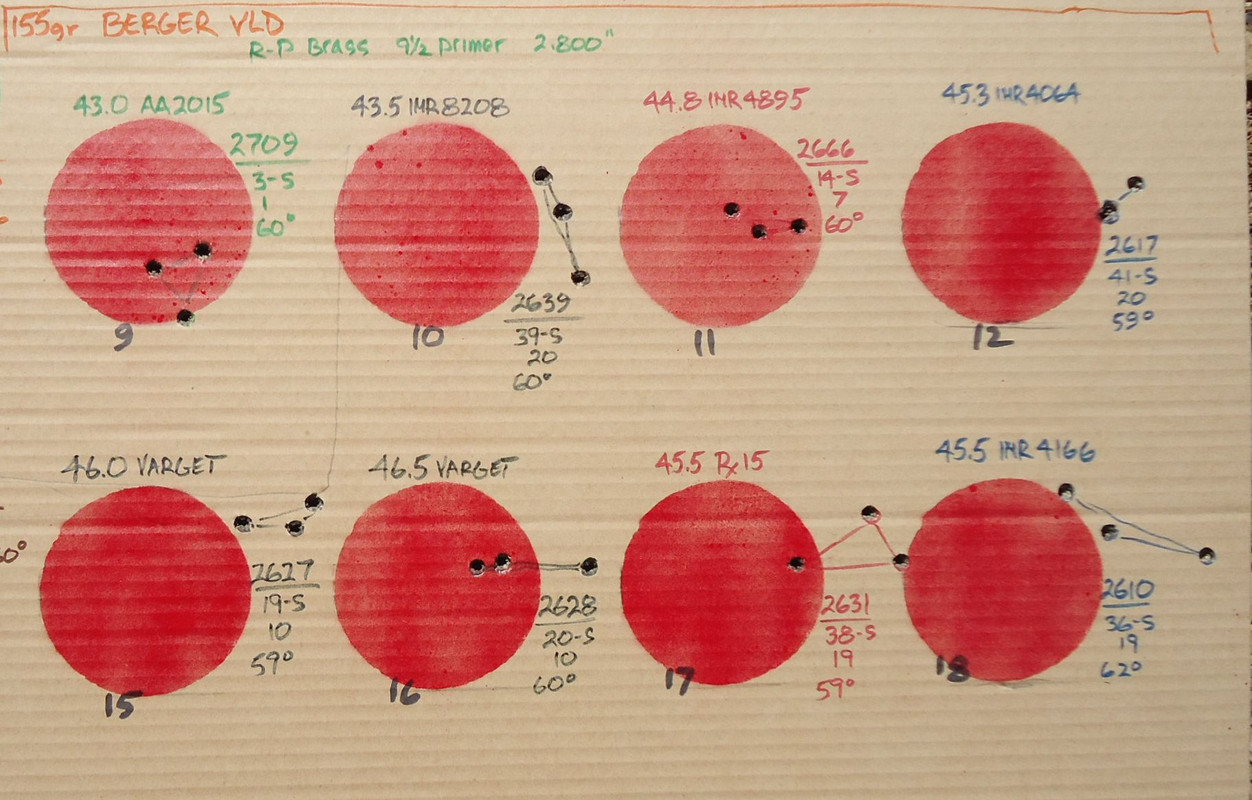 155gr BERGER VLD
R-P Brass 9½ primer 2.800"
43.0 AA2015
2709
3-S
1
60°
9
43.5 IMR8208
2639
39-S
20
60°
10
44.8 IMR4895
2666
14-S
7
60°
11
45.3 IMR4064
2617
41-S
20
59°
12
60°
46.0 VARGET
2627
19-S
10
59°
15
46.5 VARGET
2628
20-S
10
60°
16
45.5 Rx15
2631
38-S
19
59°
17
45.5 IMR4166
2610
36-S
19
62°
18